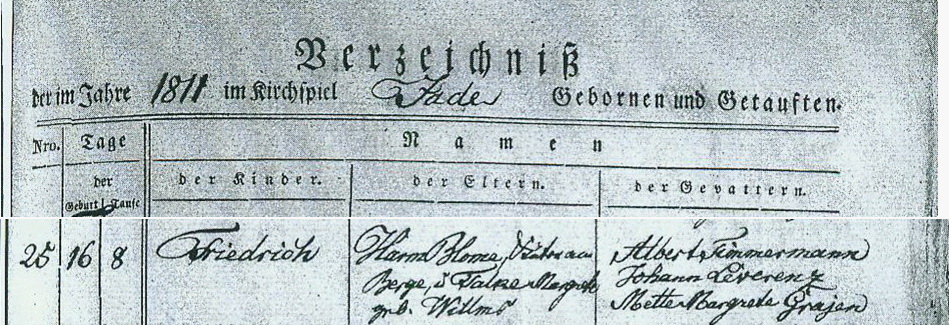 Verzeichniß
der im Jahre 1811 im Kirchspiel Jade Gebornen und Getauften.
Nro. Tage Namen
der der Kinder. der Eltern. der Gevattern.
Geburt Taufe
25 16 8 Friedrich Harm Blome, Albert Timmermann
Berge, u Talke Margrete Johann Leverenz
geb. Willms Mette Margrete Grajen